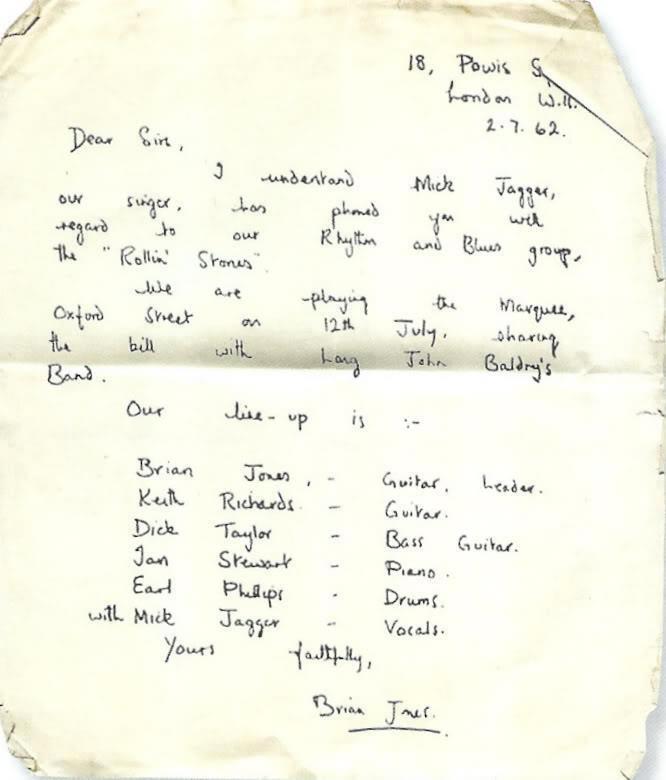 18, Powis S
London W.11.
2.7.62.
Dear Sirs,
I understand Mick Jagger,
our singer, has phoned you with
regard to our Rhythm and Blues group,
the "Rollin' Stones".
We are playing the Marquee,
Oxford Street on 12th July, sharing
the bill with Long John Baldry's
Band.
Our line-up is :-
Brian Jones, - Guitar. Leader.
Keith Richards. - Guitar.
Dick Taylor - Bass Guitar.
Ian Stewart - Piano.
Earl Phillips - Drums.
with Mick Jagger - Vocals.
Yours faithfully,
Brian Jones.